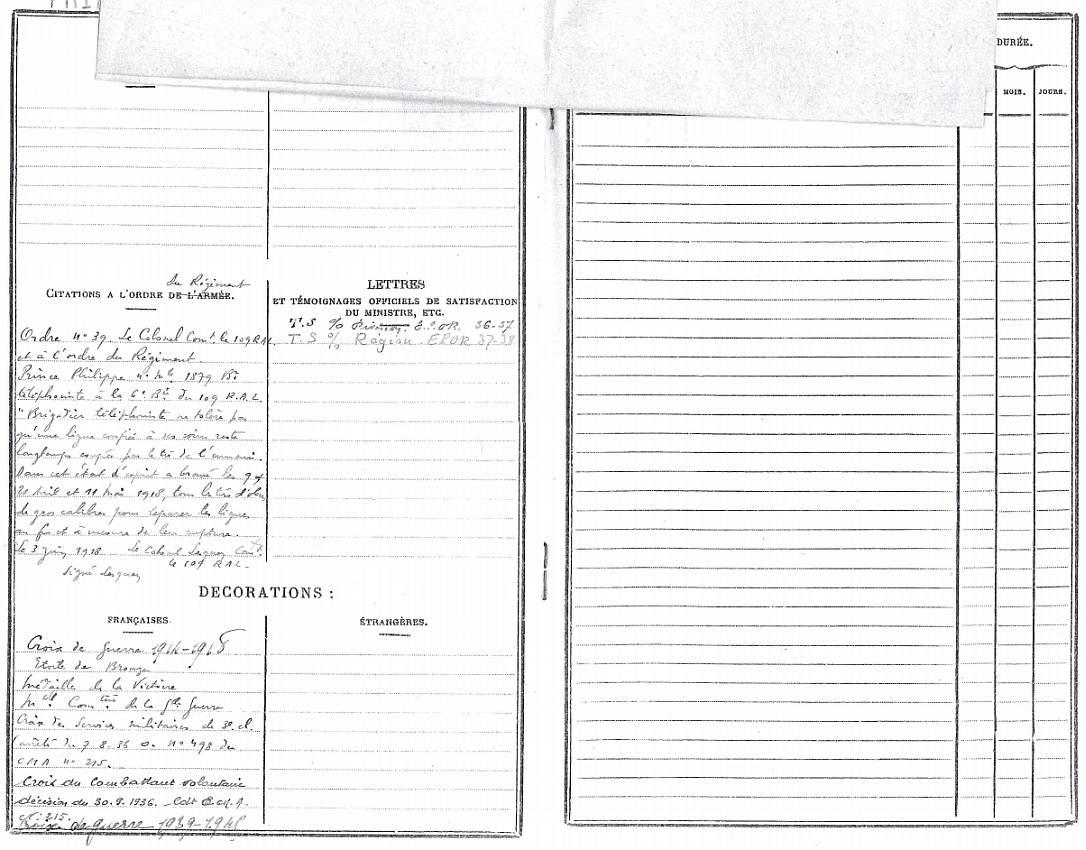 DURÉE.
MOIS. JOURS.
du Régiment
CITATIONS A L'ORDRE DE L'ARMÉE.
Ordre n° 39 Le Colonel Comt. le 109 RAL
et à l'ordre du Régiment.
Prince Philippe n° 1879 Br
téléphoniste à la 6e Bie du 109 R.A.L.
"Brigadier téléphoniste ne tolère pas
qu'une ligne confiée à ses soins reste
longtemps coupée par le tir de l'ennemi.
Dans cet état d'esprit a bravé les 9 et
21 Avril et 11 Mai 1918, tous les tirs d'obus
de gros calibres pour réparer les lignes
au fur et à mesure de leur rupture.
Le 3 Juin 1918 Le Colonel Comt.
le 109 R.A.L.
signé
LETTRES
ET TÉMOIGNAGES OFFICIELS DE SATISFACTION
DU MINISTRE, ETC.
T.S o/o Division E.O.R. 36-37
T.S o/o Région EPOR 37-38
DECORATIONS :
FRANÇAISES.
Croix de guerre 1914-1918
Etoile de Bronze
Médaille de la Victoire
Mell Comtive de la Gde Guerre
Croix des Services militaires de 3e cl.
(arrêté du 7.8.36 o. n° 498 du
CMA n° 215.
Croix du Combattant volontaire
décision du 30.9.1936.
n° 215.
Croix de guerre 1939-1945
ÉTRANGÈRES.